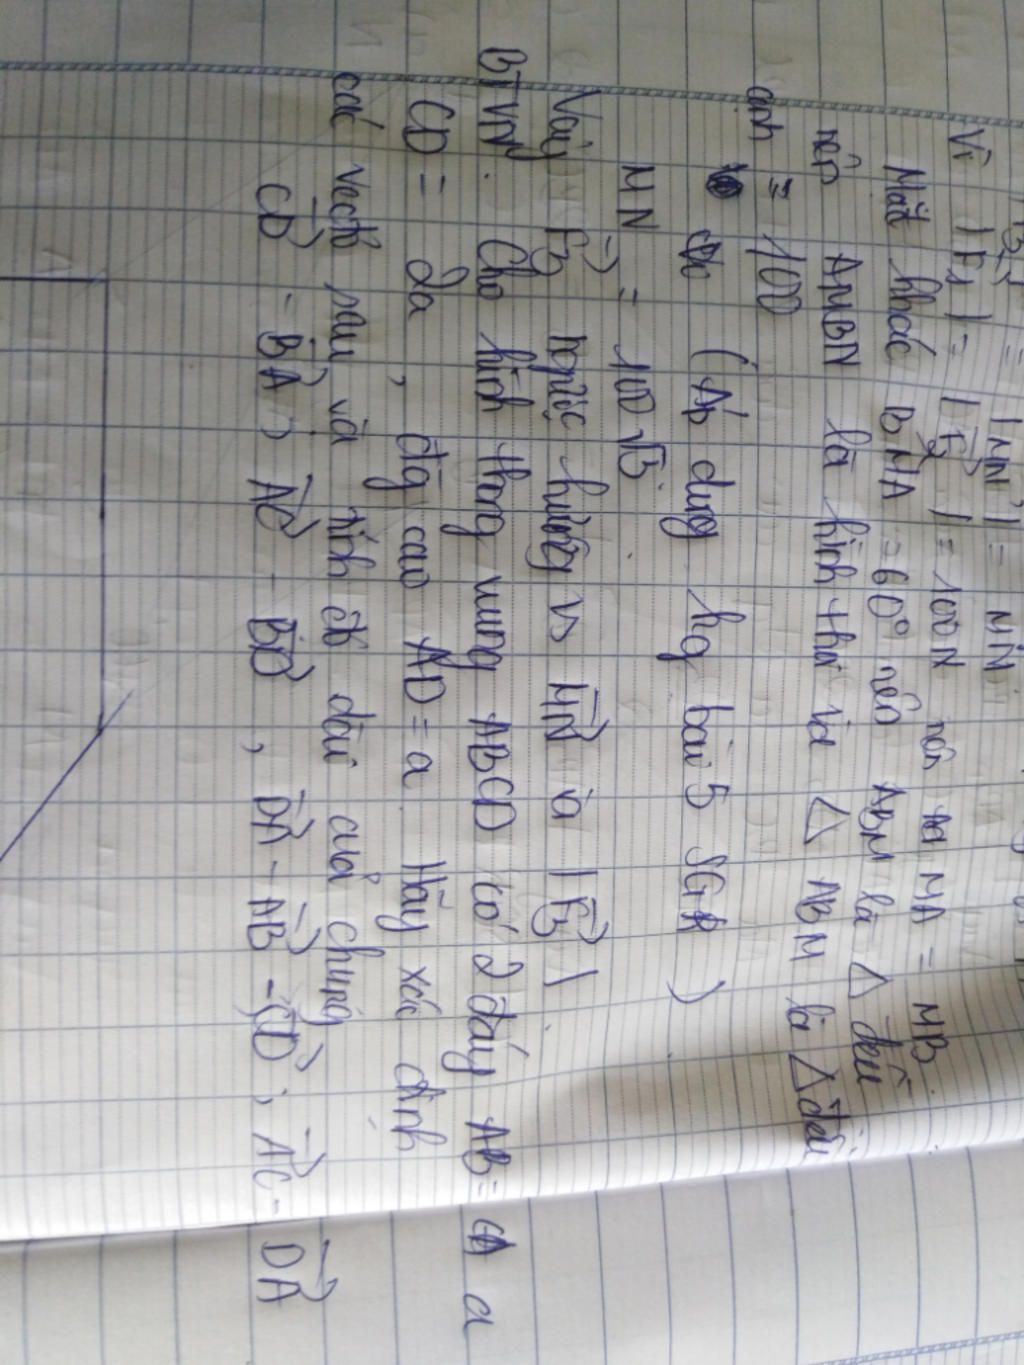 = |MN| = MN
Vì |F₁| = |F₂| = 100N nên MA = MB.
Mặt khác BMA = 60° nên ABM là △ đều
nên AMBN là hình thoi và △ ABM là △ đều
cạnh = 100
(Áp dụng bài 5 SGK)
MN = 100√3.
Vậy F₃ ngược hướng vs MN và |F₃|
BTVN. Cho hình thang vuông ABCD có 2 đáy AB = a
CD = 2a, đg cao AD = a. Hãy xác định
các vectơ sau và tính độ dài của chúng
CD⃗ - BA⃗; AC⃗ - BD⃗, DA⃗ - AB⃗ - CD⃗; AC⃗ - DA⃗